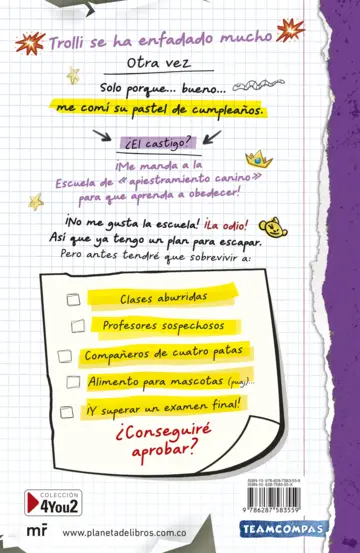 Trolli se ha enfadado mucho
Otra vez
Solo porque... bueno...
me comí su pastel de cumpleaños.
¿El castigo?
¡Me manda a la
Escuela de «apiestramiento canino»
para que aprenda a obedecer!
¡No me gusta la escuela! ¡La odio!
Así que ya tengo un plan para escapar.
Pero antes tendré que sobrevivir a:
Clases aburridas
Profesores sospechosos
Compañeros de cuatro patas
Alimento para mascotas (puaj)...
¡Y superar un examen final!
¿Conseguiré
aprobar?
COLECCIÓN
4You2
mr
www.planetadelibros.com.co
9 786287 583559
TEAMCOMPAS